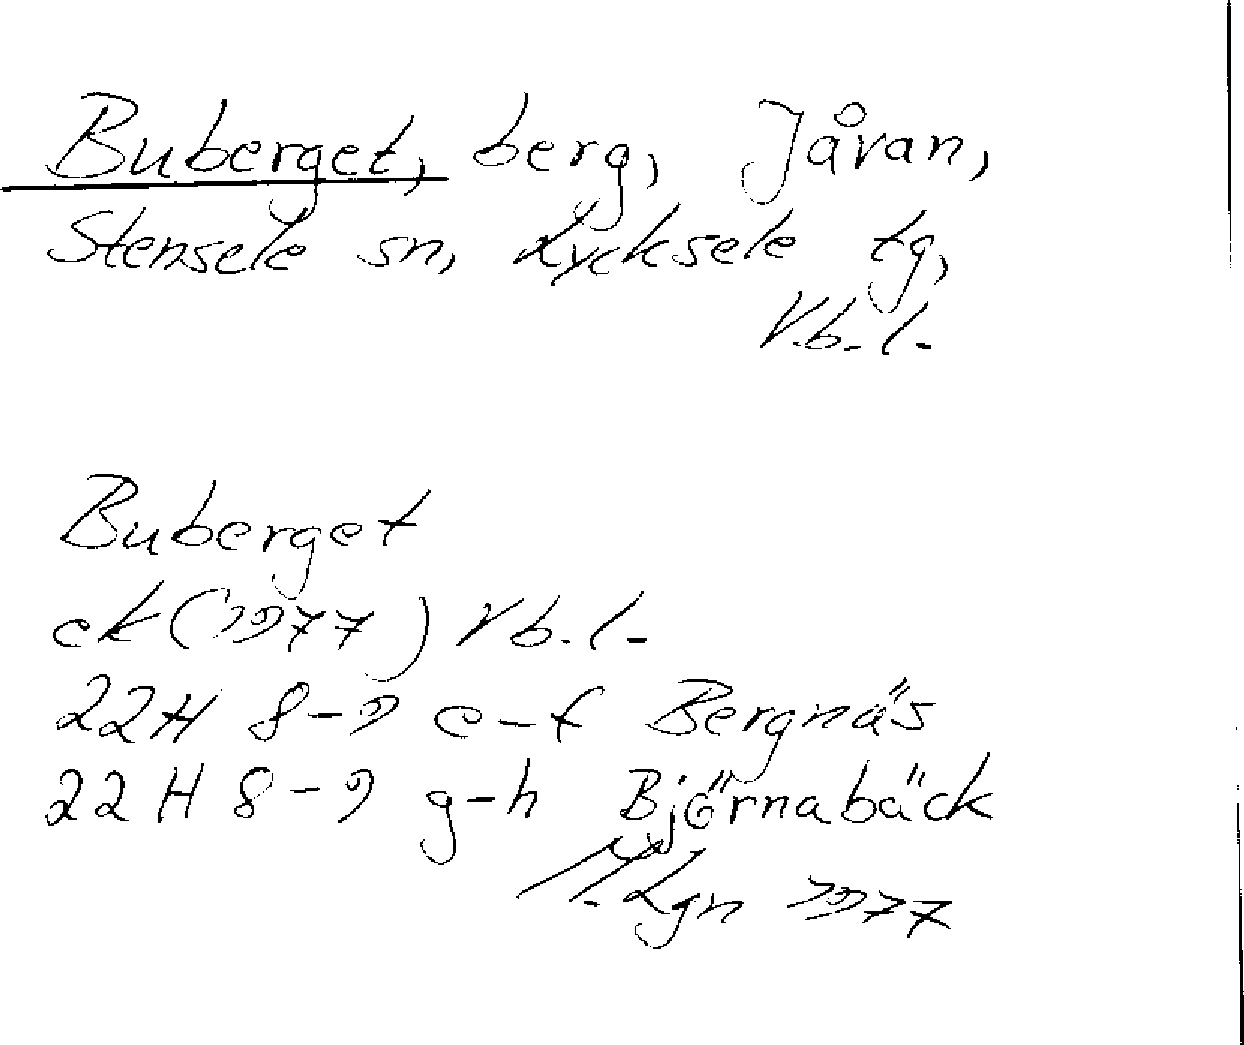 Buberget, berg, Jåvan,
Stensele sn, Lycksele tg,
Vb. l.
Buberget
ek (1977) Vb. l.
22H 8-9 e-f Bergnäs
22H 8-9 g-h Björnabäck
M. Lgn 1977